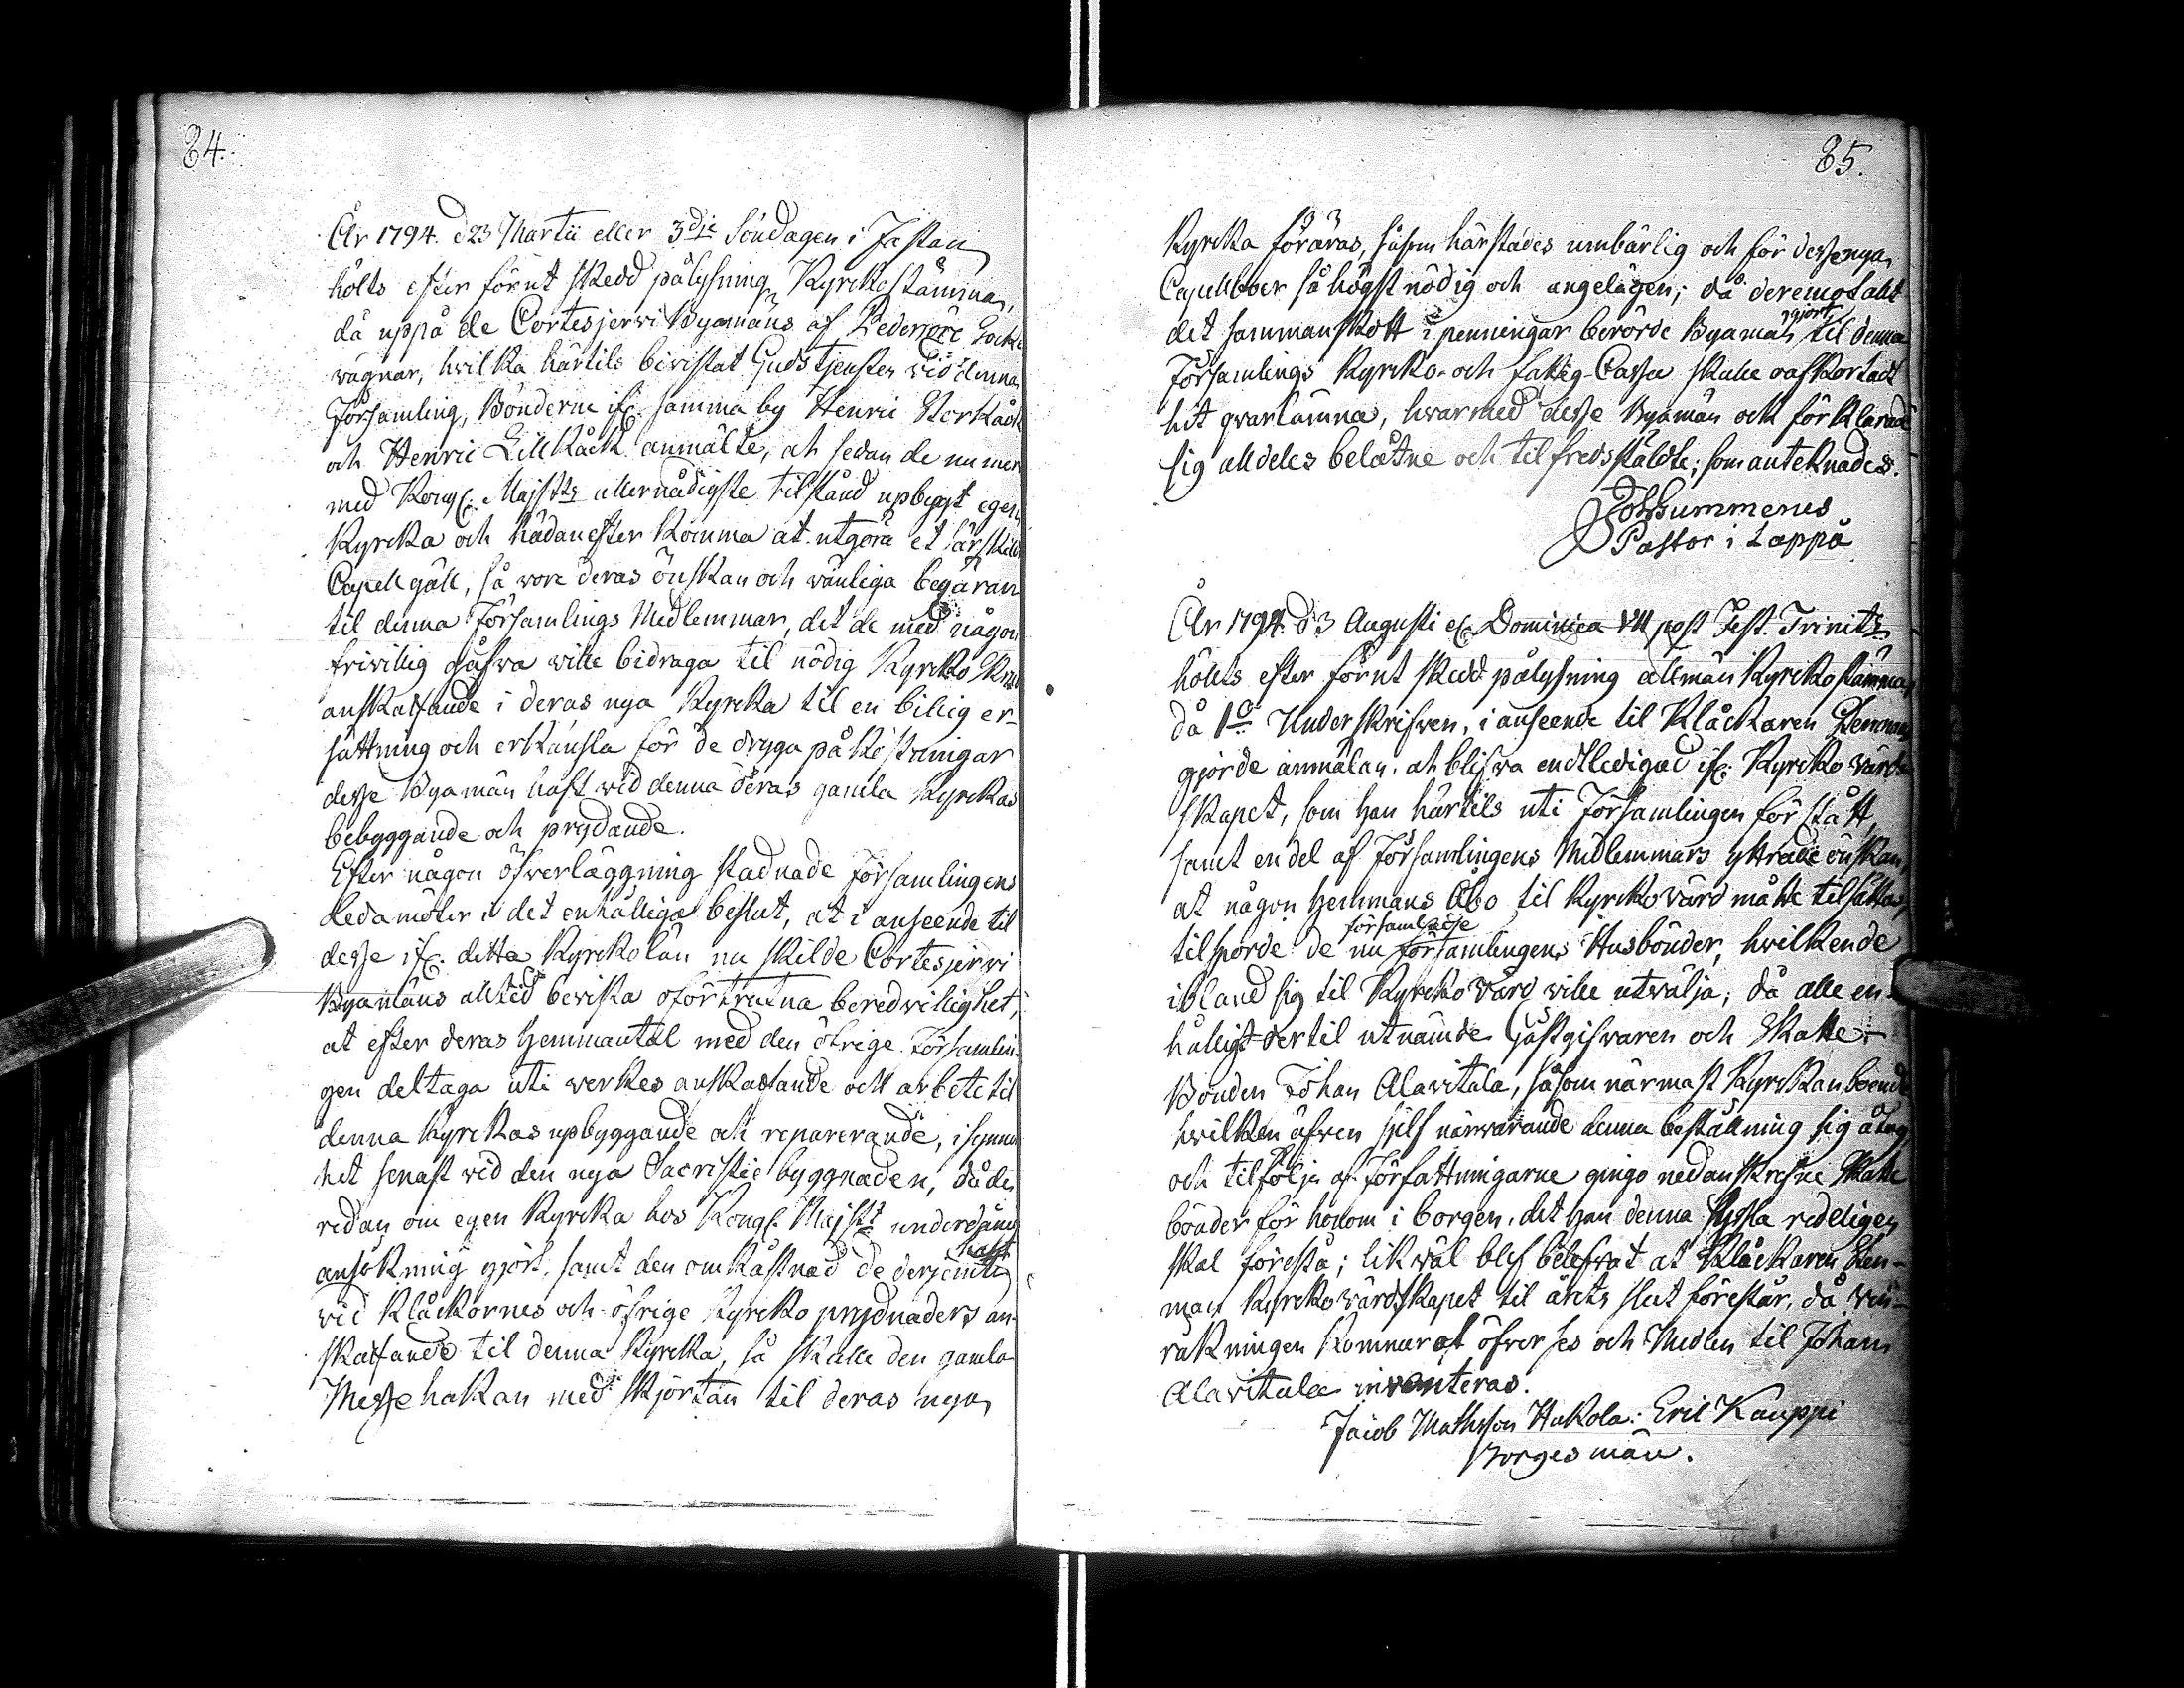 84.
År 1794. d 23 Martii eller 3die Söndagen i Fastan
hölts efter förut skedd pålysning Kyrckostämma,
då uppå de Cortesjerwi Byamäns af Pedersöre Sockn
wägnar, hwilka härtils bevistat Gudstjensten vid denna
Församling, Bönderne if. samma by Henric Storkåck
och Henric Lillkåck anmälte, at sedan de nu mer
med Kongl. Majsts allernådigste tilstånd upbygt egen
Kyrcka och hädanefter komma at utgöra et särskildt
Capell gäll, så wore deras önskan och wänliga begäran
til denna Församlings Medlemmar, det de med någon
friwillig gåfwa wille bidraga til nödig Kyrcko skrud
anskaffande i deras nya Kyrcka til en billig er-
sättning och erkänsla för de dryga påkostningar
desse Byamän haft wid denna deras gamla Kyrckas
bebyggande och prydande.
Efter någon öfverläggning stadnade Församlingens
Ledamöter i det enhälliga beslut, at i anseende til
desse if. detta Kyrckolän nu skilde Cortesjerwi
Byamäns alltid beviska oförtrutna beredvillighet,
at efter deras Hemmantal med den öfrige Församlin-
gen deltaga uti werkes anskaffande och arbete til
denna Kyrckas upbyggande och reparerande, i synner
het senast wid den nya Sacristie byggnaden, då de
redan om egen Kyrcka hos Kongl. Majst underdånig
ansökning gjort, samt den omkåstnad de derjemte
haft
vid Klåckornes och öfrige Kyrcko prydnaders an-
skaffande til denna Kyrcka, så skulle den gamla
Messehakan med Skjortan til deras nya
85.
Kyrcka föräras, såsom härstädes umbärlig och för desse nya
Capellboer så högst nödig och angelägen; då deremot alt
det sammanskott i penningar berörde Byamän gjort til denna
Församlings Kyrcko- och fattig-Cassa skulle oafkortadt
hit qvarlämna, hwarmed desse Byamän och förklarade
sig alldeles belåtne och tilfredsstäldte; som anteknades.
Joh Gummerus
Pastor i Lappå
År 1794. d 3 Augusti el. Dominica VII post Fest. Trinits
hölts efter förut skedd pålysning allmän Kyrckostämma,
då 1o Underskrifwen, i anseende til Klåckaren Henmans
gjorde anmälan, at blifwa entledigad if. Kyrcko värd-
skapet, som han härtils uti Församlingen förstått,
samt en del af Församlingens Medlemmars yttrade önskan,
at någon Hemmans Åbo til Kyrckovärd måtte tilsättas,
tilsporde de nu församlade Församlingens Husbönder, hwilken de
ibland sig til Kyrckovärd wille utwälja; då alle en-
hälligt dertil utnämde Gästgifwaren och Skatte-
Bonden Johan Alavitala, såsom närmast Kyrckan boende
hwilken äfwen sjelf närwarande denna beställning sig åtog
och til följe af Författningarne gingo nedanskrefne Skatte
bönder för honom i borgen, det han denna syssla redeligen
skal förestå; likwäl blef belefwat at Klåckaren Hen-
man Kyrckovärdskapet til årets slut förestår, då
räkningen kommer at öfverses och Medlen til Johan
Alavitala inventeras.
Jacob Mathsson Hakola: Eric Kauppi
Borgesmän.